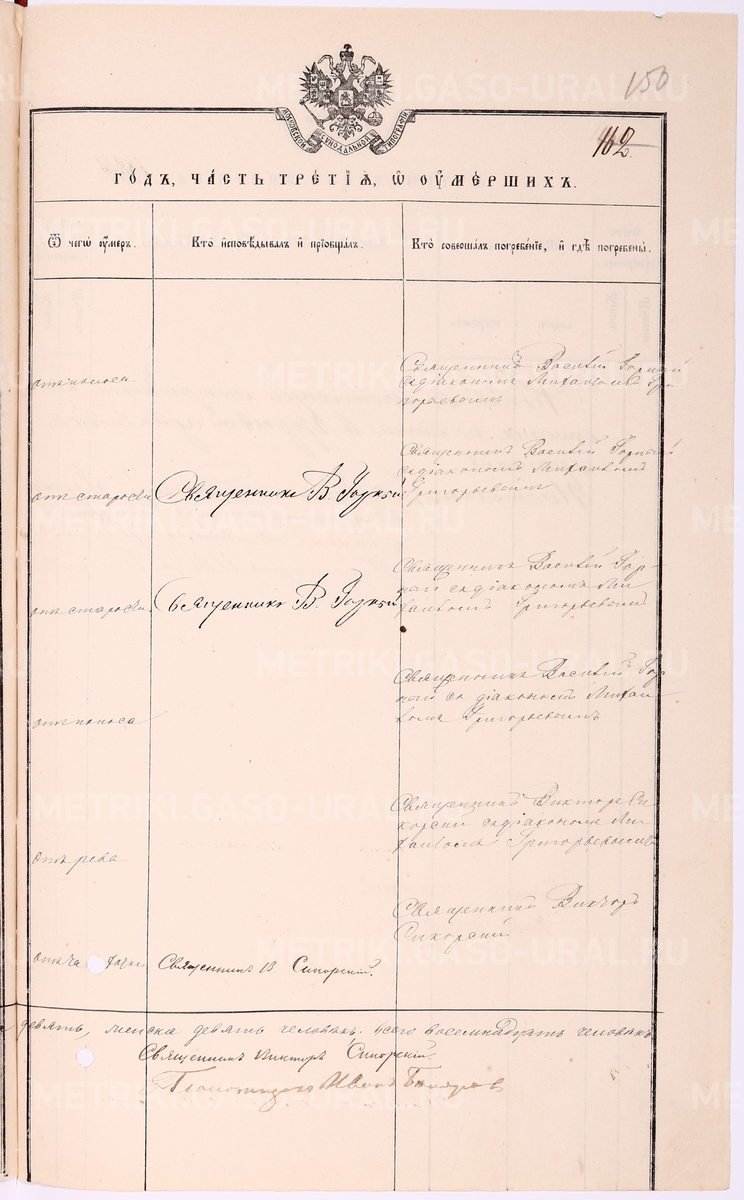 150
МОСКОВСКОЙ СУНОДАЛЬНОЙ ТИПОГРАФІИ
162
ГОДЪ, ЧАСТЬ ТРЕТІЯ, Ѿ ОУМЕРШИХЪ.
Ѿ чегѡ оумеръ.
Кто исповѣдывалъ и пріобщалъ.
Кто совершалъ погребеніе, и гдѣ погребены.
отъ поноса
Священникъ Василій Горный
съ діакономъ Михаиломъ Гри
горьевымъ
отъ старости
Священникъ В Горный
Священникъ Василій Горный
съ діакономъ Михаиломъ
Григорьевымъ
отъ старости
Священникъ В. Горный
Священникъ Василій Гор-
ный съ діакономъ Ми
хаиломъ Григорьевымъ
отъ поноса
Священникъ Василій Гор
ный съ діакономъ Михаи-
ломъ Григорьевымъ
отъ рева
Священникъ Викторъ Си
корскій съ діакономъ Ми
хаиломъ Григорьевымъ
отъ чахотки
Священникъ В. Сикорскій.
Священникъ Викторъ
Сикорскій
девять, женска девять человѣкъ. всего восемнадцать человѣкъ
Священникъ Викторъ Сикорскій.
Иванъ
METRIKI.GASO-URAL.RU